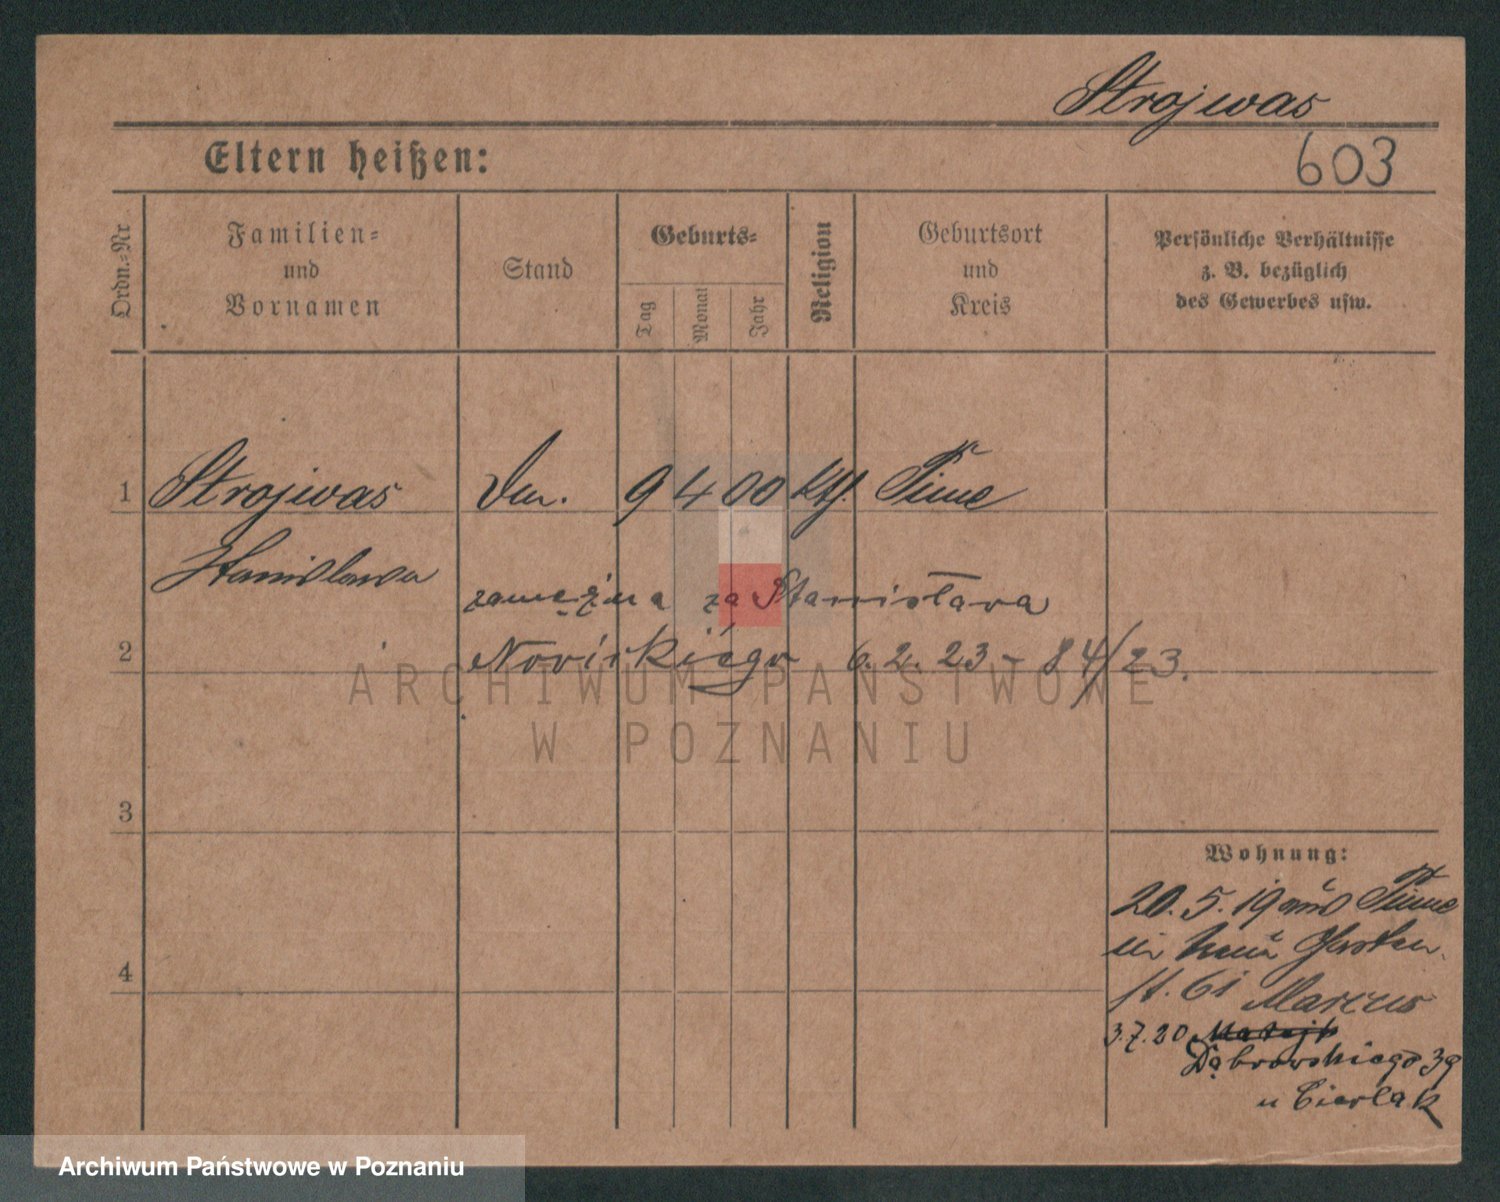 Strojwas
Eltern heißen:
603
Ordn.=Nr.
Familien=
und
Vornamen
Stand
Geburts=
Tag
Monat
Jahr
Religion
Geburtsort
und
Kreis
Persönliche Verhältnisse
z. B. bezüglich
des Gewerbes usw.
1 Strojwas 9 4 00 kth.
Stanislawa
zamężna za Stanisława
2 Nowickiego 6.2.23 - 84/23.
3
4
Wohnung:
20.5.19
st. 61 Marcus
3.7.20
Dąbrowskiego 39
u Cierlak
ARCHIWUM PAŃSTWOWE
W POZNANIU
Archiwum Państwowe w Poznaniu